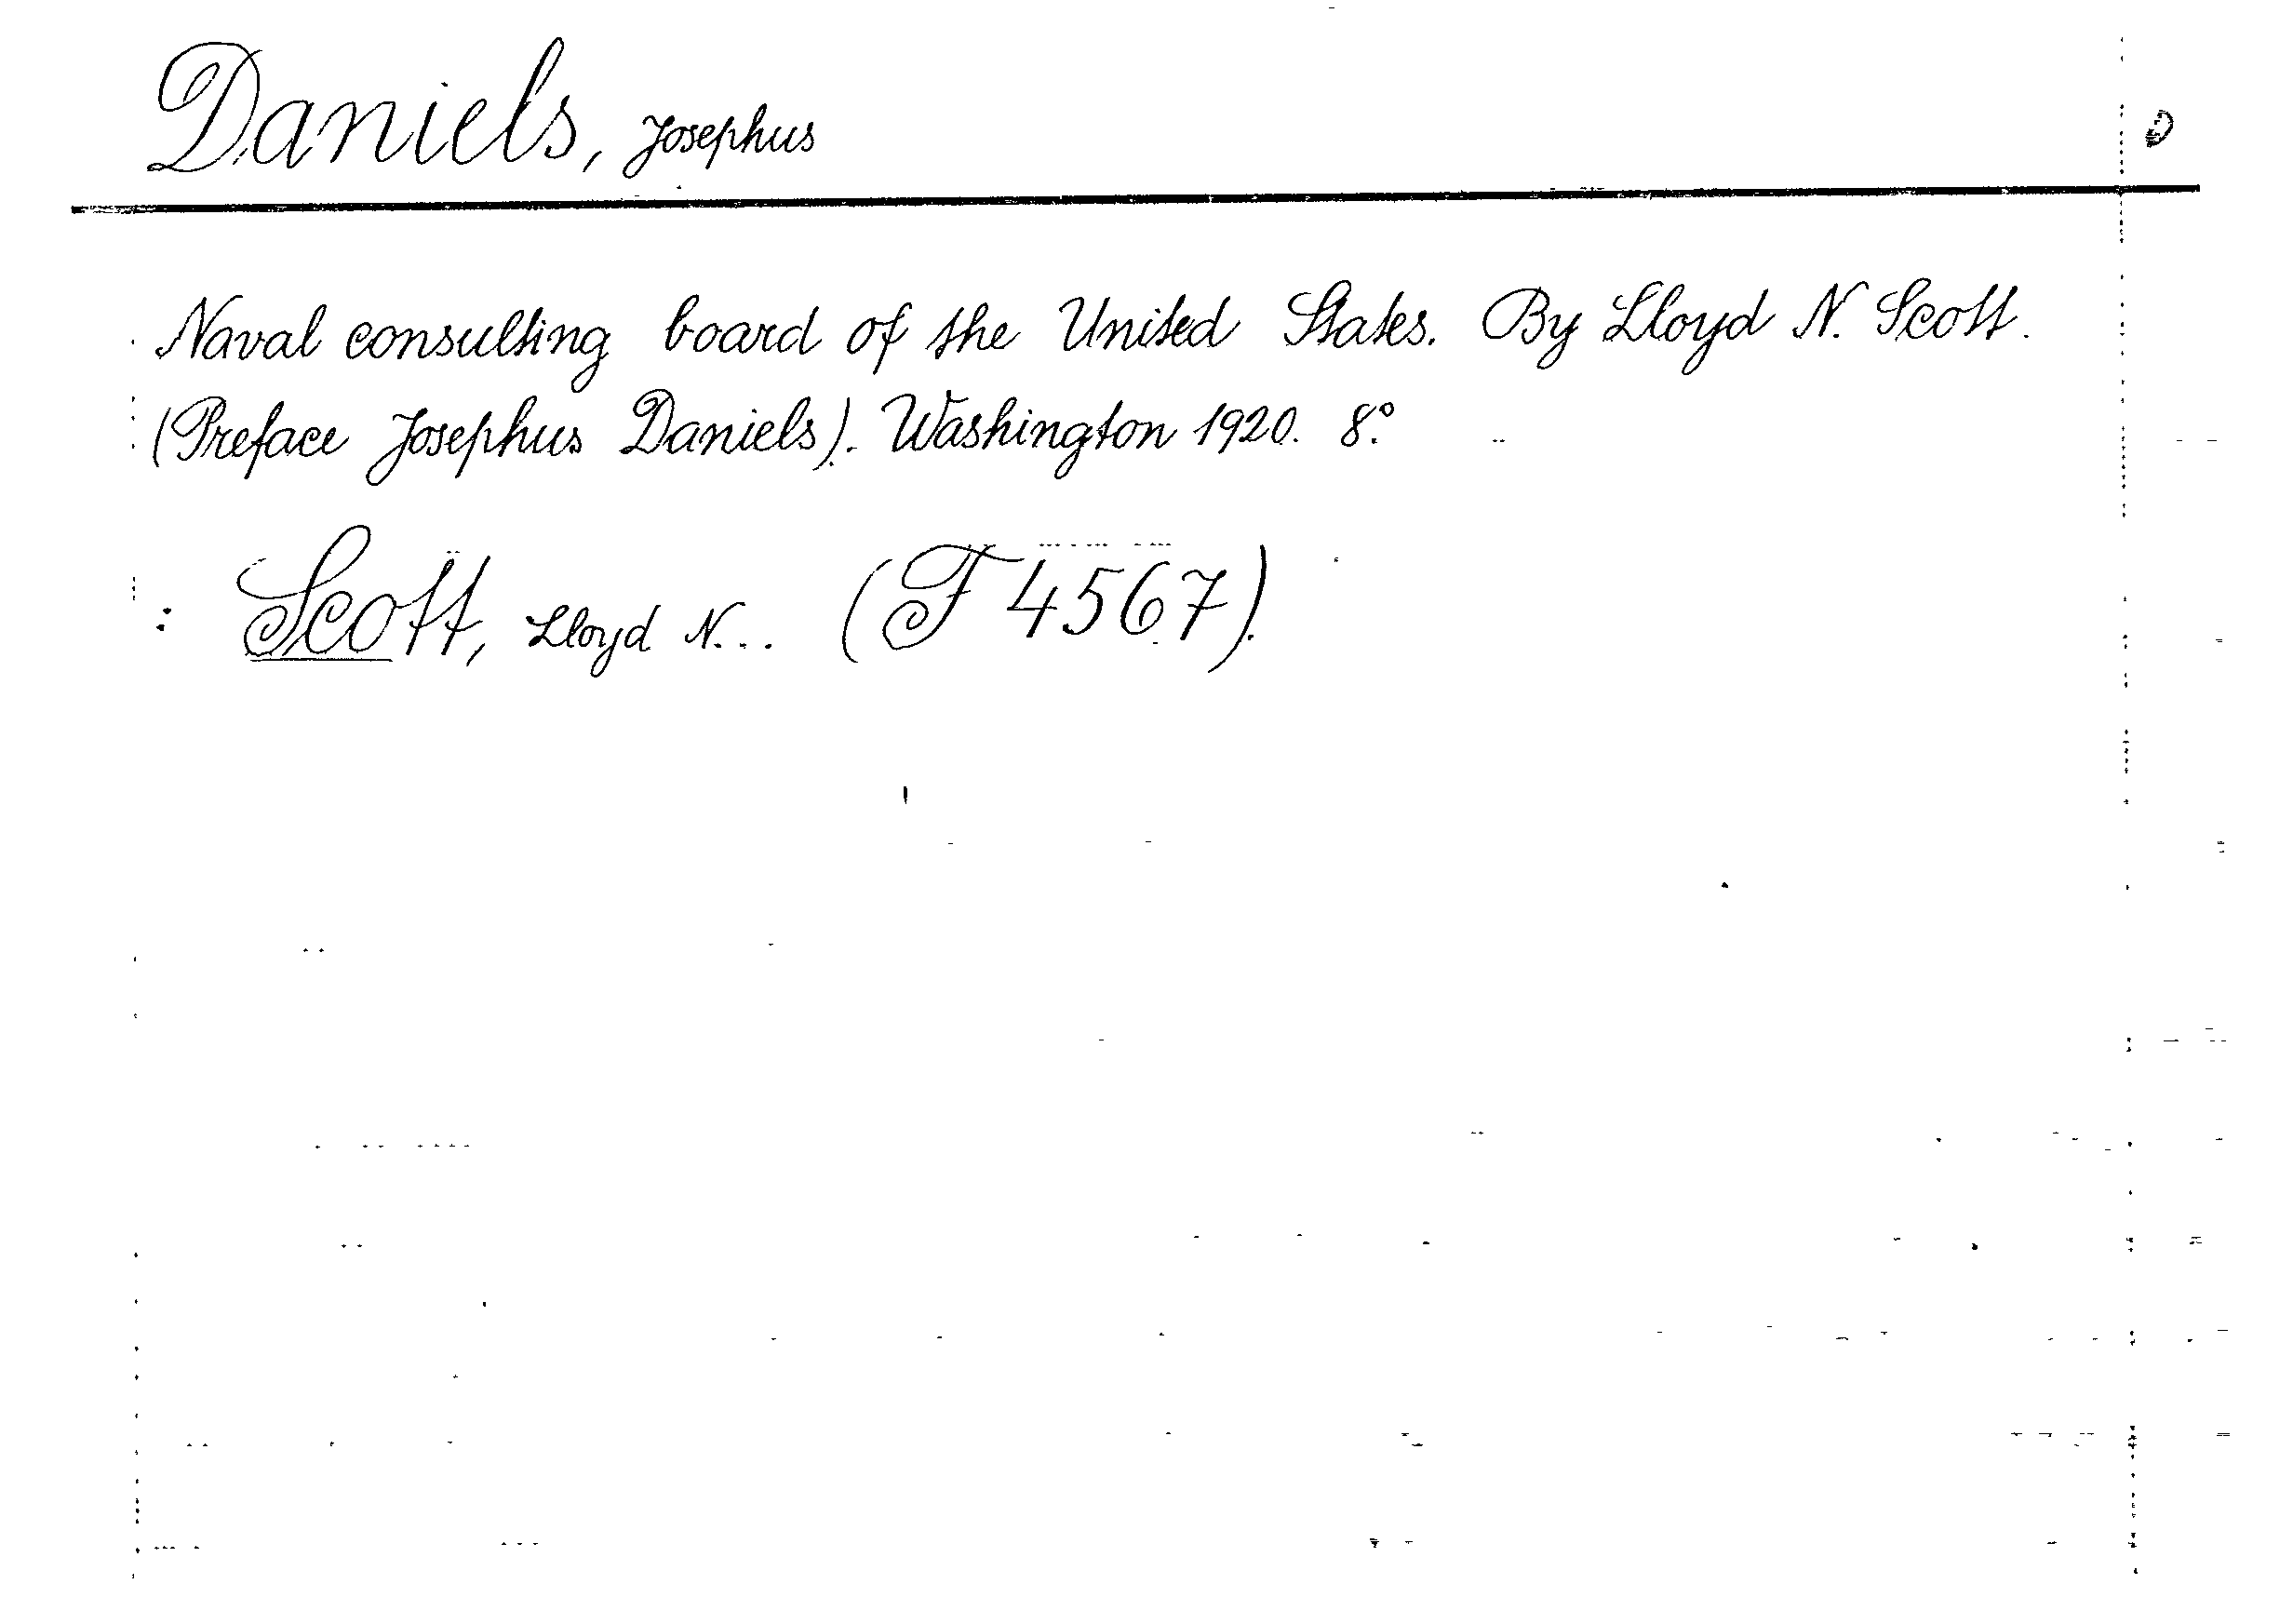 Daniels, Josephus
Naval consulting board of the United States. By Lloyd N. Scott.
(Preface Josephus Daniels). Washington 1920. 8°.
: Scott, Lloyd N... (F 4567).